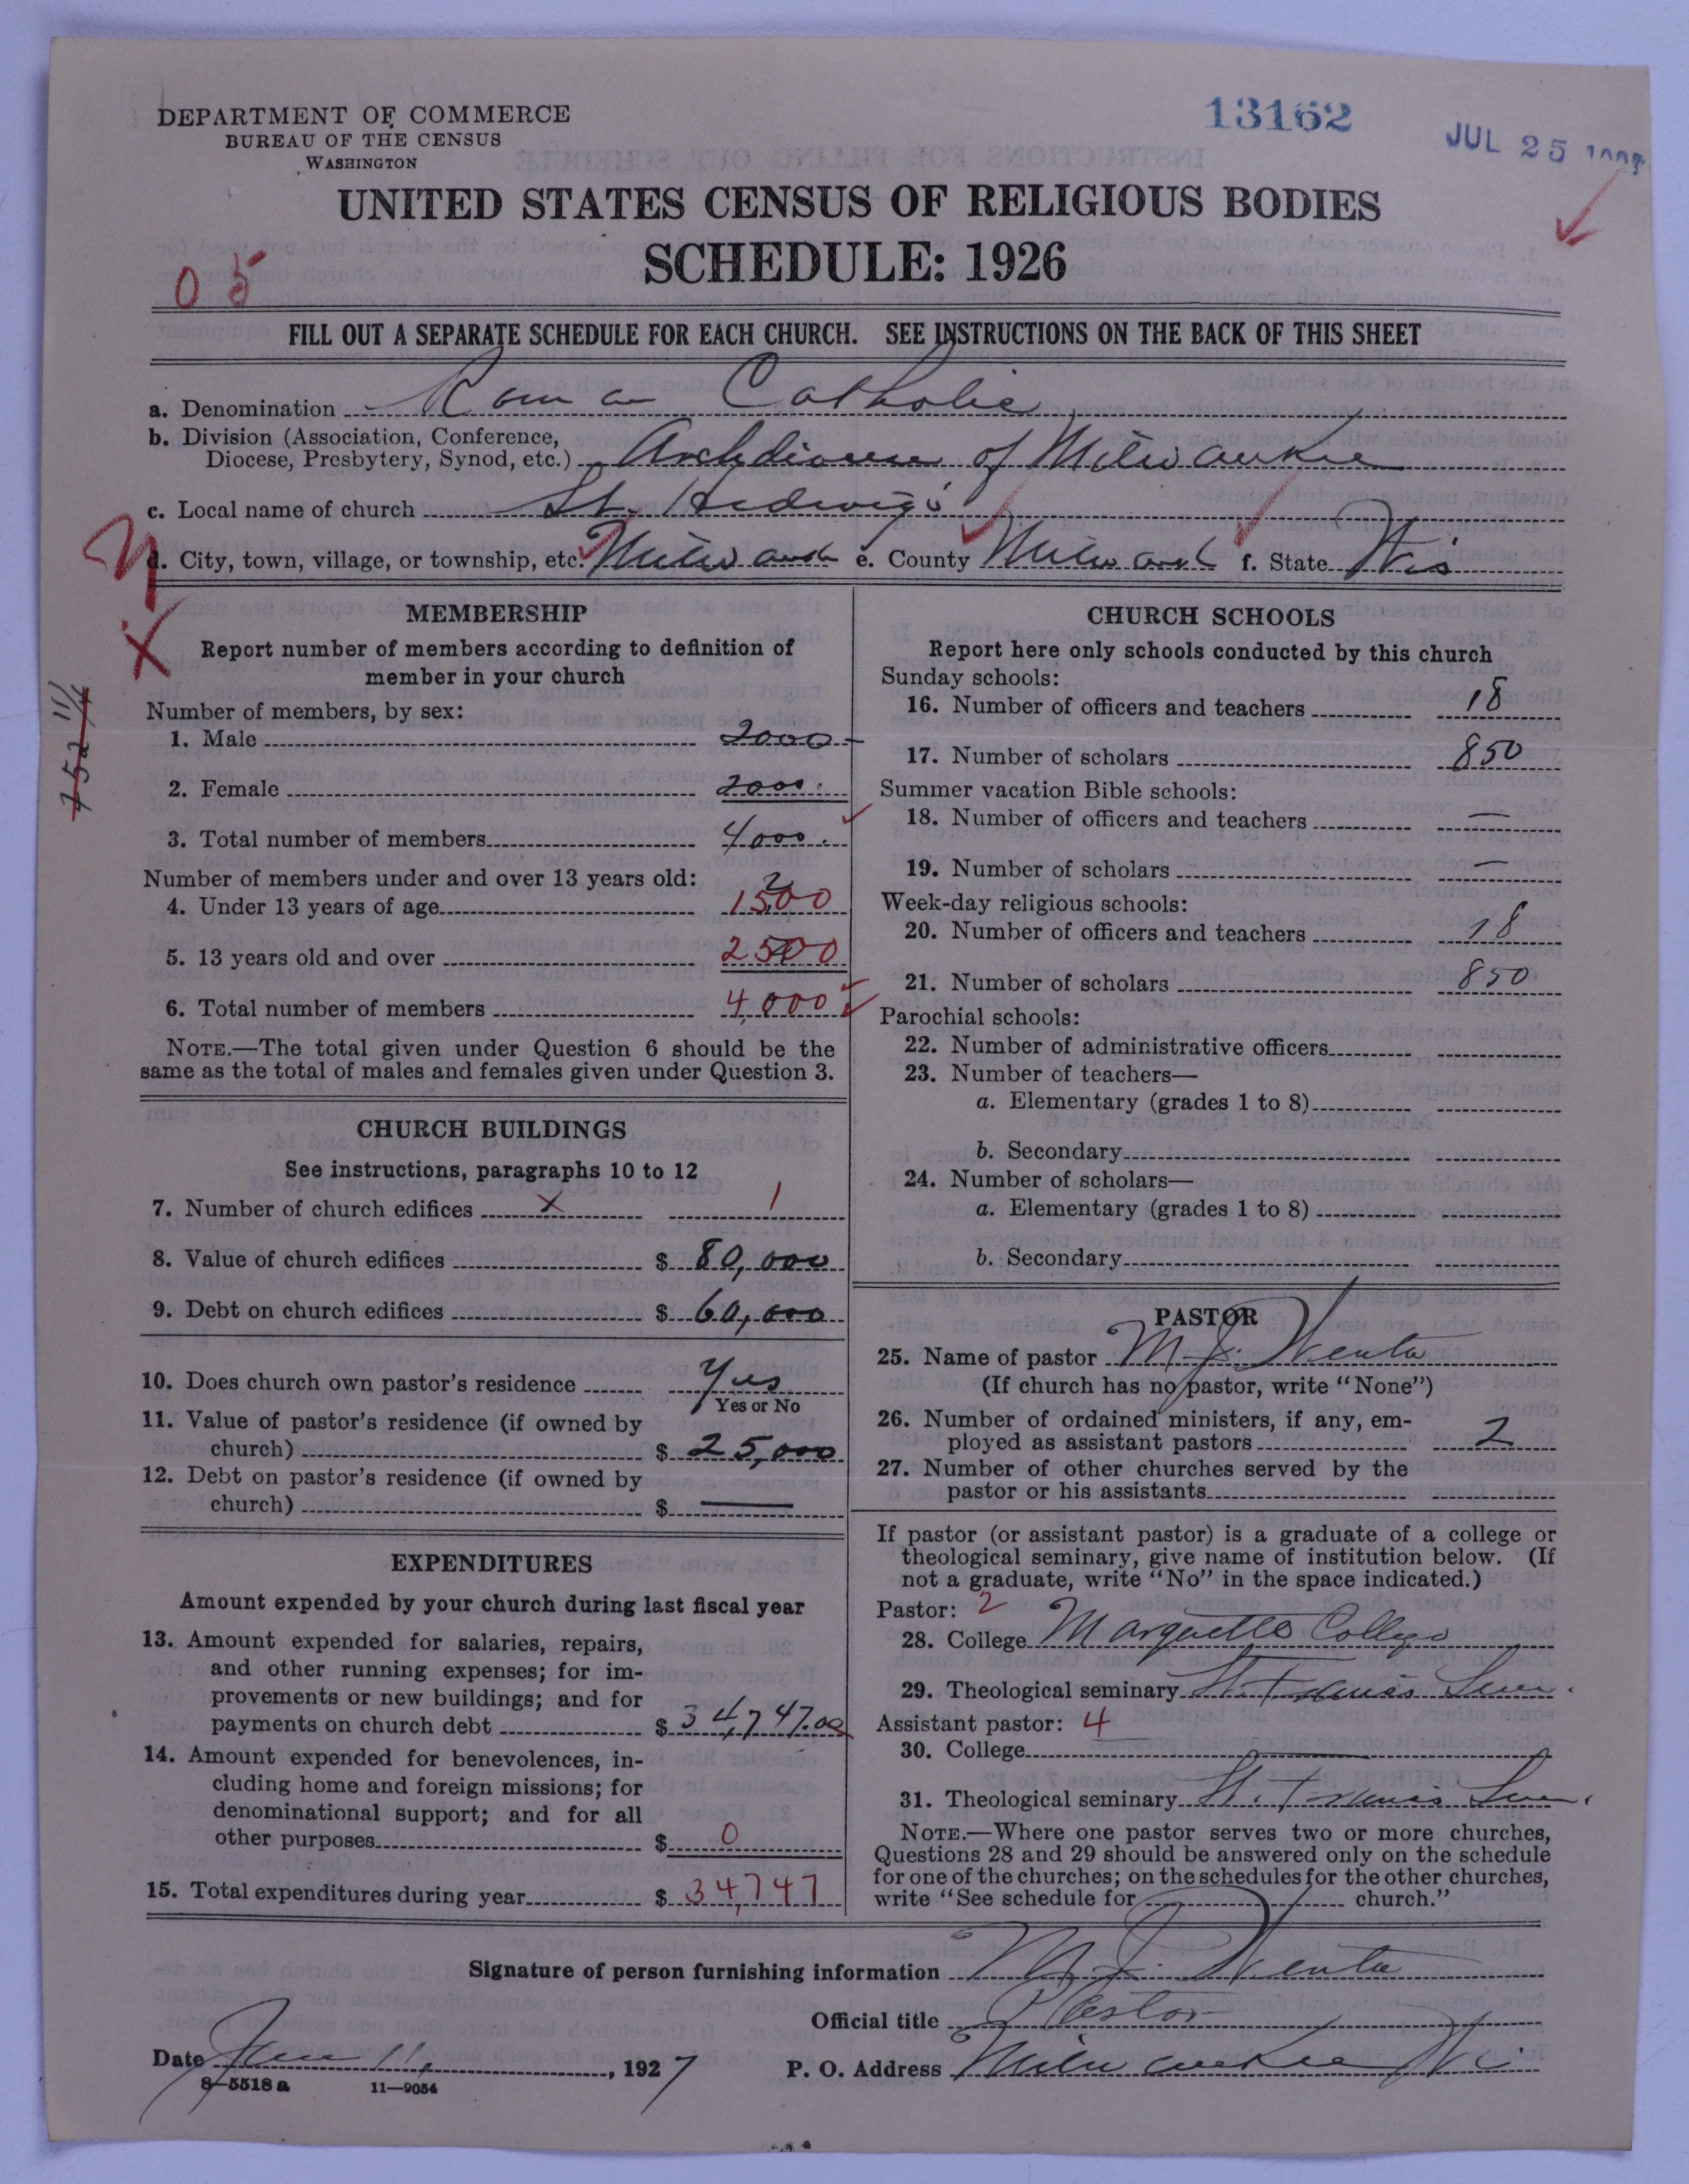 DEPARTMENT OF COMMERCE
BUREAU OF THE CENSUS
WASHINGTON
13162
JUL 25
UNITED STATES CENSUS OF RELIGIOUS BODIES
SCHEDULE: 1926
05
FILL OUT A SEPARATE SCHEDULE FOR EACH CHURCH. SEE INSTRUCTIONS ON THE BACK OF THIS SHEET
a. Denomination Roman Catholic
b. Division (Association, Conference,
Diocese, Presbytery, Synod, etc.) Archdiocese of Milwaukee
c. Local name of church St. Hedwig's
d. City, town, village, or township, etc. Milwauk e. County Milwauk f. State Wis
MEMBERSHIP
Report number of members according to definition of
member in your church
Number of members, by sex:
1. Male 2000
2. Female 2000
3. Total number of members 4000
Number of members under and over 13 years old:
4. Under 13 years of age 1500
5. 13 years old and over 2500
6. Total number of members 4,000
NOTE.—The total given under Question 6 should be the
same as the total of males and females given under Question 3.
CHURCH BUILDINGS
See instructions, paragraphs 10 to 12
7. Number of church edifices x 1
8. Value of church edifices $ 80,000
9. Debt on church edifices $ 60,000
10. Does church own pastor's residence Yes
Yes or No
11. Value of pastor's residence (if owned by
church) $ 25,000
12. Debt on pastor's residence (if owned by
church) $ —
EXPENDITURES
Amount expended by your church during last fiscal year
13. Amount expended for salaries, repairs,
and other running expenses; for im-
provements or new buildings; and for
payments on church debt $ 34,747.00
14. Amount expended for benevolences, in-
cluding home and foreign missions; for
denominational support; and for all
other purposes $ 0
15. Total expenditures during year $ 34,747
CHURCH SCHOOLS
Report here only schools conducted by this church
Sunday schools:
16. Number of officers and teachers 18
17. Number of scholars 850
Summer vacation Bible schools:
18. Number of officers and teachers —
19. Number of scholars —
Week-day religious schools:
20. Number of officers and teachers 18
21. Number of scholars 850
Parochial schools:
22. Number of administrative officers
23. Number of teachers—
a. Elementary (grades 1 to 8)
b. Secondary
24. Number of scholars—
a. Elementary (grades 1 to 8)
b. Secondary
PASTOR
25. Name of pastor M. J. Wenta
(If church has no pastor, write "None")
26. Number of ordained ministers, if any, em-
ployed as assistant pastors 2
27. Number of other churches served by the
pastor or his assistants
If pastor (or assistant pastor) is a graduate of a college or
theological seminary, give name of institution below. (If
not a graduate, write "No" in the space indicated.)
Pastor: 2
28. College Marquette College
29. Theological seminary St. Francis Sem.
Assistant pastor: 4
30. College —
31. Theological seminary St. Francis Sem.
NOTE.—Where one pastor serves two or more churches,
Questions 28 and 29 should be answered only on the schedule
for one of the churches; on the schedules for the other churches,
write "See schedule for church."
Signature of person furnishing information M. J. Wenta
Official title Pastor
Date 11, 1927 P. O. Address Milwaukee Wi
8-5518 a 11—9054